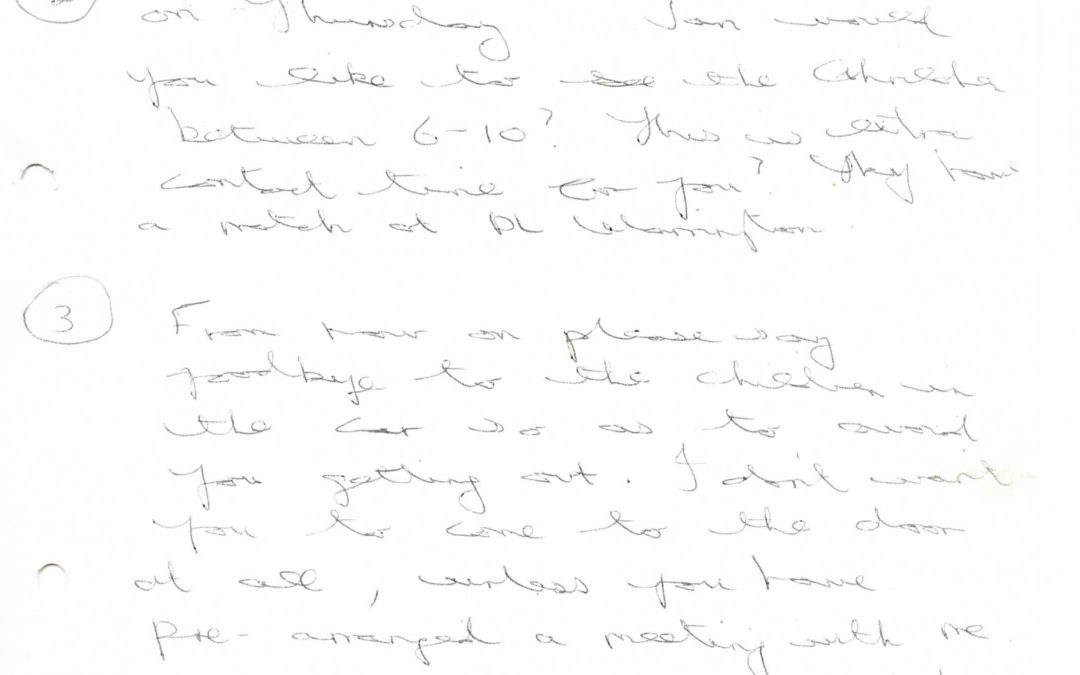 2 on Thursday Ian would
you like to see the Children
between 6-10? This is extra
contact time for you? They have
a match at DL Warrington.
3 From now on please say
goodbye to the children in
the car so as to avoid
you getting out. I don't want
you to come to the door
at all, unless you have
pre-arranged a meeting with me